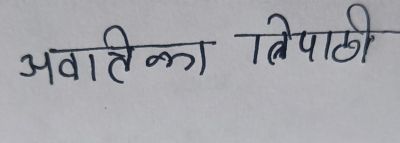 अवातिका त्रिपाठी